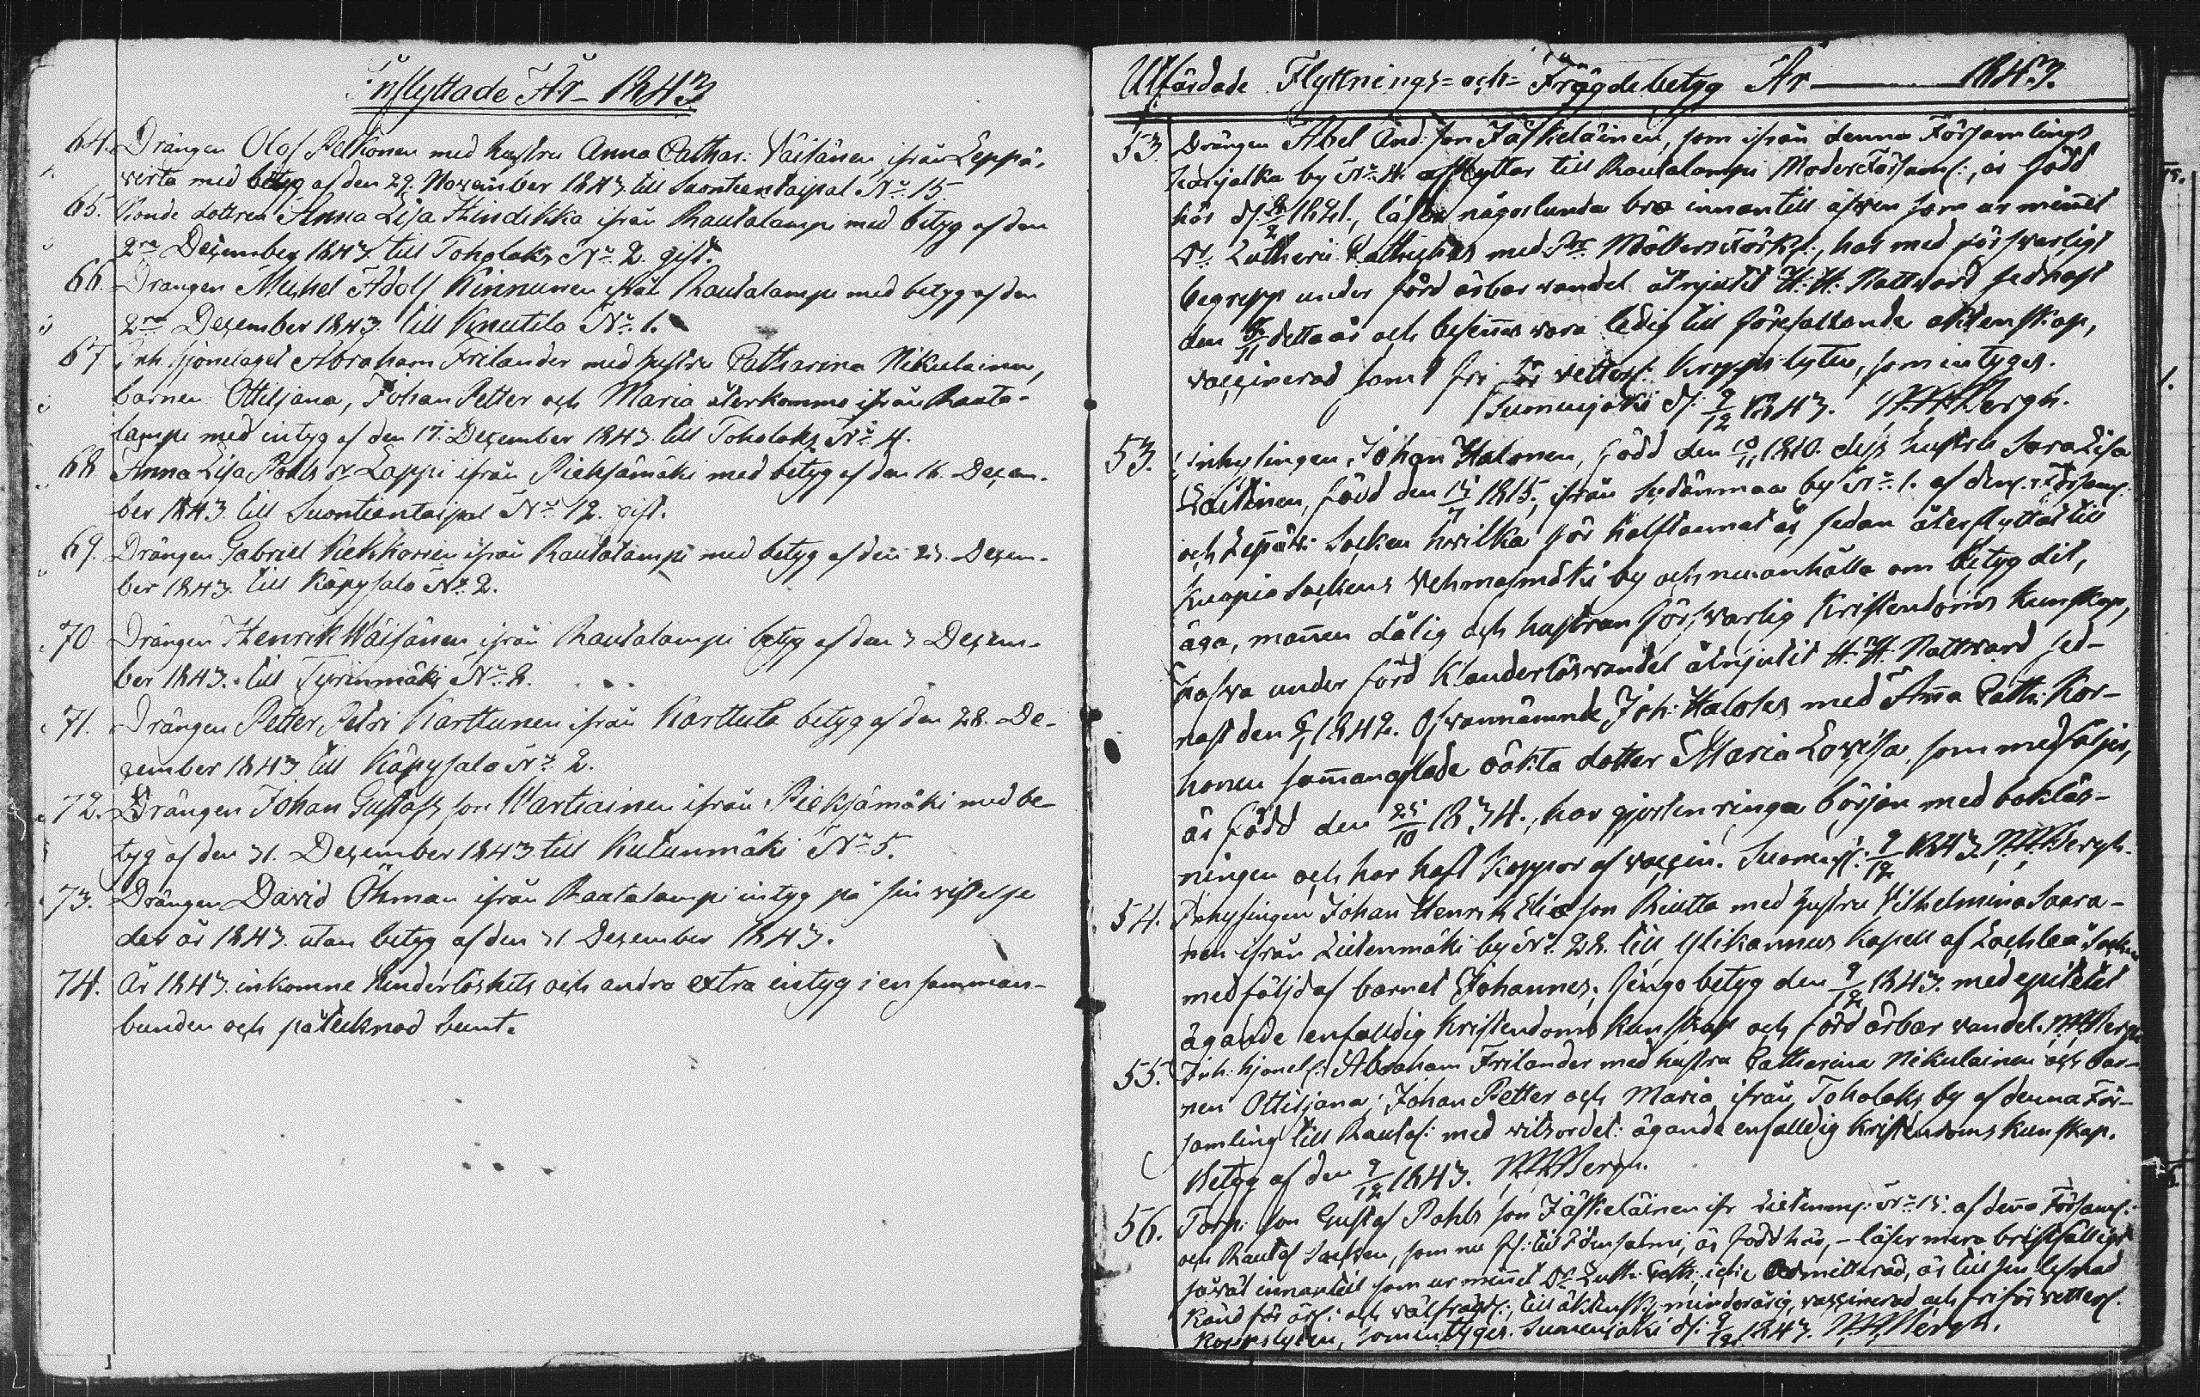 Inflyttade År 1843
64. Drängen Olof Pelkonen med hustru Anna Cathar: Väisänen ifrån Leppä-
virta med betyg af den 29. November 1843 till Suontientaipal N:o 15
65. Bonde dottren Anna Lisa Hindikka ifrån Rautalampi med betyg af den
2:ra December 1843 till Toholaks N:o 2. gift.
66. Drängen Michel Adolf Kinnunen ifrån Rautalampi med betyg af den
2:ra December 1843. till Knutila N:o 1.
67. Inh. hjonelaget Abraham Frilander med hustru Catharina Nikulainen,
barnen Ottiljana, Johan Petter och Maria återkomne ifrån Rauta-
lampi med intyg af den 17. December 1843 till Toholaks N:o 4.
68 Anna Lisa Pohls dr Lappi ifrån Pieksämäki med betyg af den 16. Decem-
ber 1843 till Suontientaipal N:o 12. gift.
69. Drängen Gabriel Kekkonen ifrån Rautalampi med betyg af den 23. Decem-
ber 1843 till Käpysalo N:o 2.
70 Drängen Henrik Wäisänen ifrån Rautalampi betyg af den 3 Decem-
ber 1843. till Tyrinmäki N:o 8.
71. Drängen Petter Petri Karttunen ifrån Karttula betyg af den 28. De-
cember 1843 till Käpysalo N:o 2.
72. Drängen Johan Gustafs son Wartiainen ifrån Pieksämäki med be-
tyg af den 31. December 1843 till Kutunmäki N:o 5.
73. Drängen David Öhman ifrån Rautalampi intyg på sin vistelse
der år 1843 utan betyg af den 31 December 1843.
74. År 1843 inkomne hinderlöshets och andra extra intyg i en samman-
bunden och påtecknad bunt.
Utfärdade Flyttnings= och= Frägdebetyg År 1843.
53. Drängen Abel And: son Jäskeläinen, som ifrån denna Församlings
by N:o 4. afflyttar till Rautalampi Moderförsaml:, är född
här d: 1821., läser någorlunda bra innantill äfven som ur minnet
D:r Lutheri Cathezes med Pr Möllers Förkl:, har med försvarligt
begrepp under förd ärbar vandel åtnjutit H. H. Nattvard sednast
den detta år och befinnes vara ledig till förefallande äktenskap,
vaccinerad samt fri för vetterl: kroppslyten, som intyges.
Suonenjoki d: 9/12 1843. Bergh.
53. Inhysingen Johan Halonen, född den 1810. dess hustru Sara Lisa
född den 1815, ifrån Sydänmaa by N:o 1. af denna Församl:
och Socken hvilka för halftannat år sedan återflyttat till
Kuopio Sockens Vehmasmäki by och nu anhålla om betyg dit,
äga, mannen dålig och hustrun försvarlig Kristendoms kunskap,
hafva under förd klanderlös vandel åtnjutit H. H. Nattvard sed-
nast den 1842. Ofvannämnde Joh: Halosks med Anna Cath: Kor-
honen sammanaflade oäkta dotter Maria Lovisa som medföljer,
är född den 25/10 1834., har gjort en ringa början med bokläs-
ningen och har haft koppor af vaccin. Suonenj: 9/12 1843. Bergh.
54. Inhysingen Johan Henrik Elias son Riutta med hustru Vilhelmina Saara-
nen ifrån Lietenmäki by N:o 28. till Ylikannus Kapell af Lochteå Socken
medföljd af barnet Johannes, fingo betyg den 9/12 1843. med epitetet
ägande enfalldig Kristendoms kunskap och förd ärbar vandel. Bergh
55. Inh: hjonel: Abraham Frilander med hustru Catharina Nikulainen och bar-
nen Ottiljana, Johan Petter och Maria ifrån Toholaks by af denna För-
samling till Rautal: med vitsordet: ägande enfalldig Kristendoms kunskap.
Betyg af den 9/12 1843. Bergh.
56. Torp: son Gustaf Pohls son Jäskeläinen ifr N:o 15. af denna Församl:
och Rautal Socken, som nu till Idensalmi, är född här, - läser mera bristfälligt
såväl innantill som ur minnet D:r Luth: Cath: icke admitterad, är till sin lefnad
känd för och till äktensk: minderårig, vaccinerad och fri för vetterl:
kroppslyten, som intyges. Suonenjoki d: 9/12 1843. Bergh.